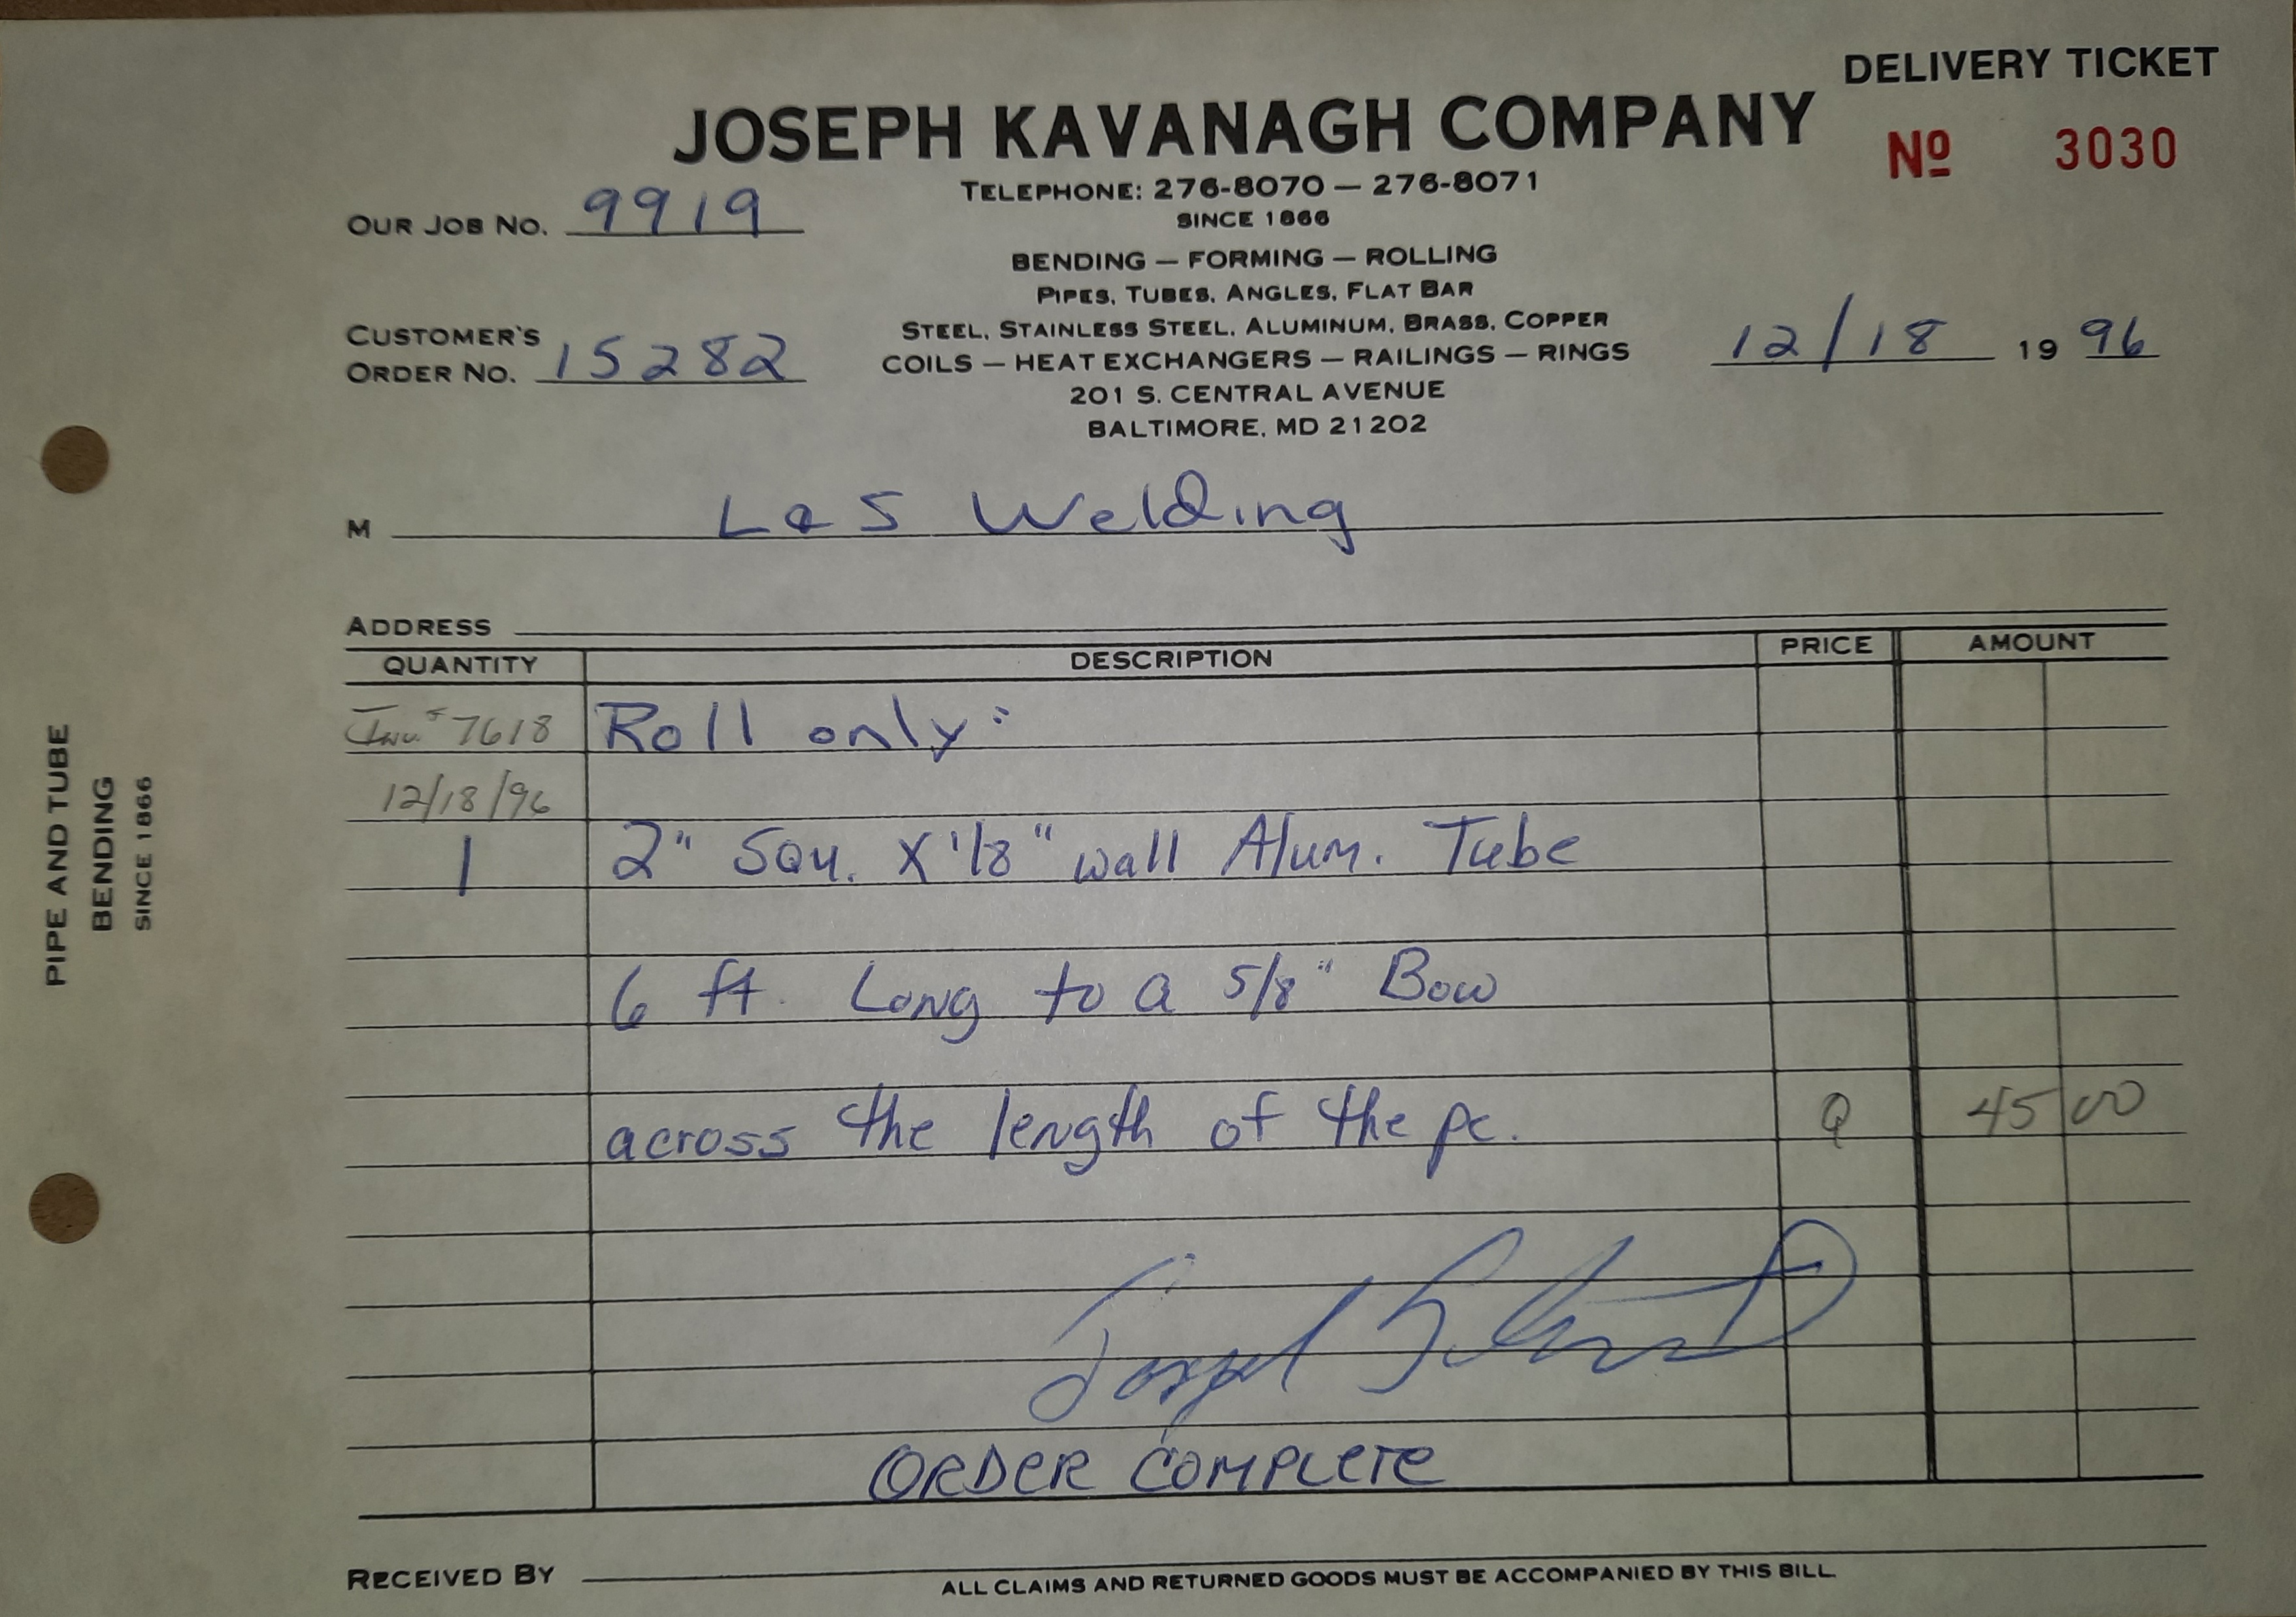 DELIVERY TICKET
JOSEPH KAVANAGH COMPANY
Nº 3030
TELEPHONE: 276-8070 — 276-8071
OUR JOB NO. 9919
SINCE 1866
BENDING — FORMING — ROLLING
PIPES, TUBES, ANGLES, FLAT BAR
STEEL, STAINLESS STEEL, ALUMINUM, BRASS, COPPER
CUSTOMER'S
ORDER NO. 15282
COILS — HEAT EXCHANGERS — RAILINGS — RINGS
12/18 19 96
201 S. CENTRAL AVENUE
BALTIMORE, MD 21202
M L & S Welding
ADDRESS
QUANTITY DESCRIPTION PRICE AMOUNT
Inv. # 7618 Roll only:
12/18/96
1 2" Squ. X 1/8" wall Alum. Tube
6 ft. Long to a 5/8" Bow
across the length of the pc. Q 45 00
Joseph
ORDER COMPLETE
RECEIVED BY
ALL CLAIMS AND RETURNED GOODS MUST BE ACCOMPANIED BY THIS BILL.
PIPE AND TUBE
BENDING
SINCE 1866